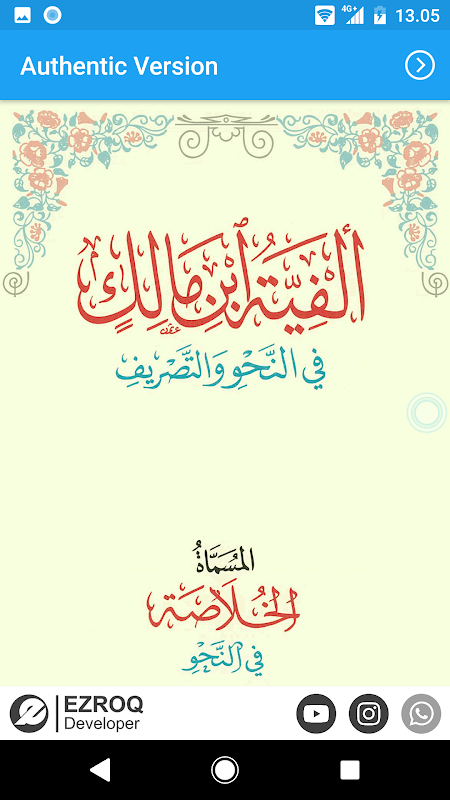 4G+
13.05
Authentic Version
ألْفِيَّةُ ٱبْنِ مَالِكٍ
في النَّحْوِ وَالتَّصْرِيفِ
المُسَمَّاةُ
الخُلَاصَة
في النَّحْوِ
EZROQ
Developer